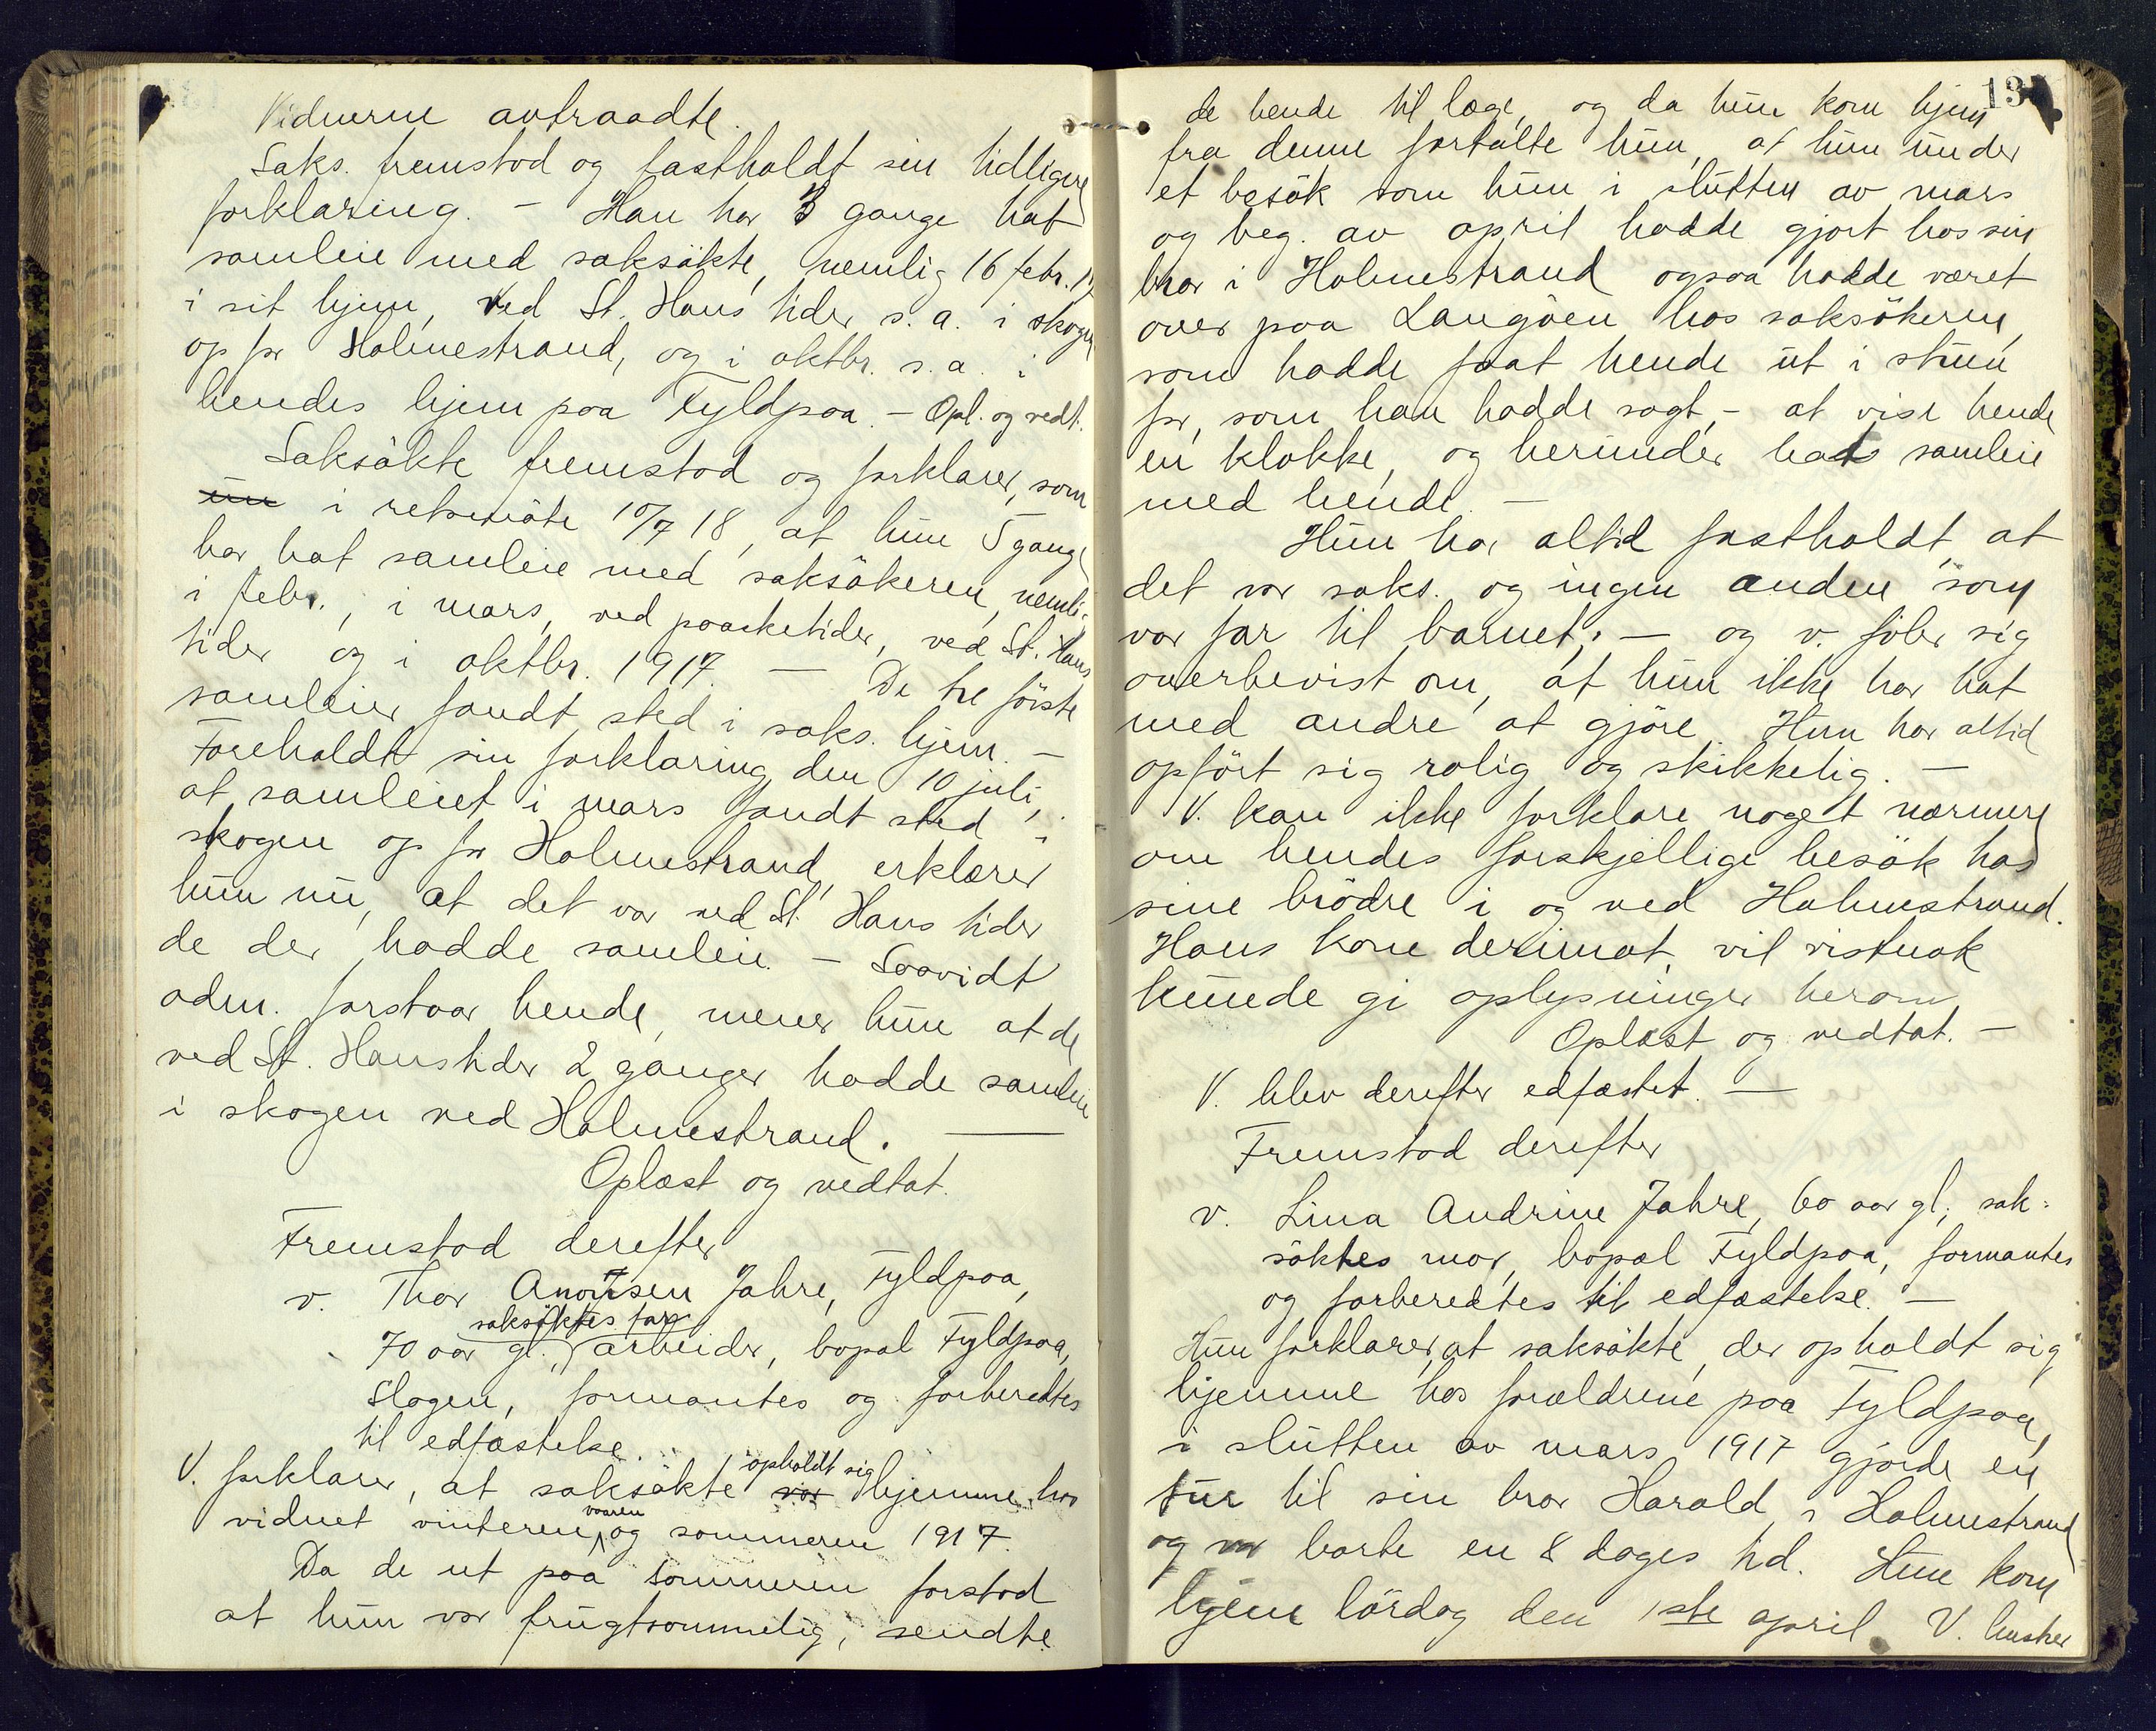 Vidnerne avtraadte.
Saks. fremstod og fastholdt sin tidligere
forklaring. - Han har 3 gange hat
samleie med saksökte, nemlig 16 febr. 17
i sit hjem, ved St. Hans tider s. a. i skogen
op for Holmestrand, og i oktbr. s. a. i
hendes hjem paa Fyldpaa. - Opl. og vedt.
Saksökte fremstod og forklarer, som
i retsmöte 10/7 18, at hun 5 gange
har hat samleie med saksökeren, nemlig
i febr., i mars, ved paasketider, ved St. Hans
tider og i oktbr. 1917. - De tre förste
samleier fandt sted i saks. hjem. -
Foreholdt sin forklaring den 10 juli,
at samleiet i mars fandt sted i
skogen op for Holmestrand, erklærer
hun nu, at det var ved St. Hans tider
de der hadde samleie. - Saavidt
adm. forstaar hende, mener hun at de
ved St. Hanstider 2 ganger hadde samleie
i skogen ved Holmestrand. -
Oplæst og vedtat.
Fremstod derefter
v. Thor Anortsen Jahre, Fyldpaa,
saksöktes far
70 aar gl., arbeider, bopæl Fyldpaa,
Slagen, formantes og forberedtes
til edfæstelse.
opholdt sig
V. forklarer, at saksökte var hjemme hos
vaaren
vidnet vinteren, og sommeren 1917.
Da de ut paa sommeren forstod
at hun var frugtsommelig, sendte
13
de hende til læge, og da hun kom hjem
fra denne fortalte hun, at hun under
et besök som hun i slutten av mars
og beg. av april hadde gjort hos sin
bror i Holmestrand ogsaa hadde været
over paa Langöen hos saksökeren,
som hadde faat hende ut i stuen
for, som han hadde sagt, - at vise hende
en klokke, og herunder hat samleie
med hende. -
Hun har altid fastholdt, at
det var saks. og ingen anden som
var far til barnet; - og v. föler sig
overbevist om, at hun ikke har hat
med andre at gjöre. Hun har altid
opfört sig rolig og skikkelig. -
V. kan ikke forklare noget nærmere
om hendes forskjellige besök hos
sine brödre i og ved Holmestrand.
Hans kone derimot, vil vistnok
kunde gi oplysninger herom.
Oplæst og vedtat. -
V. blev derefter edfæstet. -
Fremstod derefter
v. Lina Andrine Jahre, 60 aar gl; sak-
söktes mor, bopæl Fyldpaa, formantes
og forberedtes til edfæstelse. -
Hun forklarer, at saksökte, der opholdt sig
hjemme hos forældrene paa Fyldpaa,
i slutten av mars 1917 gjorde en
tur til sin bror Harald i Holmestrand
og var borte en 8 dages tid. Hun kom
hjem lördag den 1ste april. V. husker